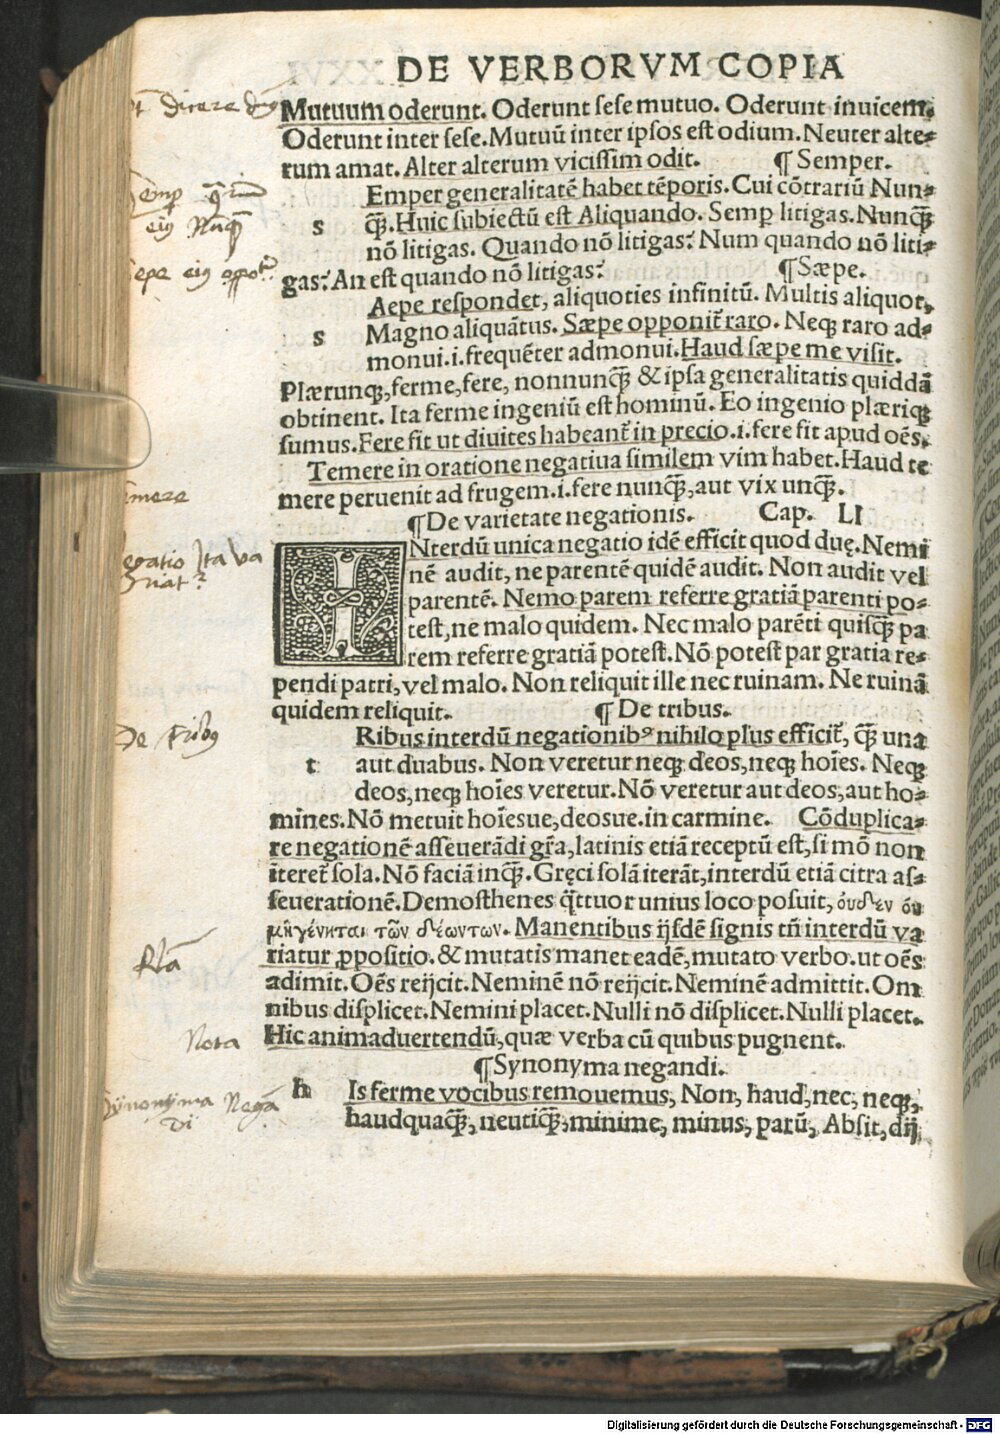 DE VERBORVM COPIA
Mutuum oderunt. Oderunt sese mutuo. Oderunt inuicem.
Oderunt inter sese. Mutuū inter ipsos est odium. Neuter alte⸗
rum amat. Alter alterum vicissim odit. ¶ Semper.
Emper generalitatē habet tēporis. Cui cōtrariū Nun⸗
s qꝫ̄. Huic subiectū est Aliquando. Semꝑ litigas. Nunqꝫ̄
nō litigas. Quando nō litigas? Num quando nō liti⸗
gas? An est quando nō litigas? ¶ Sæpe.
Aepe respondet, aliquoties infinitū. Multis aliquot,
s Magno aliquātus. Sæpe opponit̄ raro. Neqꝫ raro ad⸗
monui.i.frequēter admonui. Haud sæpe me visit.
Plærunqꝫ, ferme, fere, nonnunqꝫ̄ & ipsa generalitatis quiddā
obtinent. Ita ferme ingeniū est hominū. Eo ingenio plæriqꝫ
sumus. Fere fit ut diuites habeant̄ in precio.i.fere fit apud oēs.
Temere in oratione negatiua similem vim habet. Haud te
mere peruenit ad frugem.i.fere nunqꝫ̄, aut vix unqꝫ̄.
¶ De varietate negationis. Cap. LI
INterdū unica negatio idē efficit quod duę. Nemi
nē audit, ne parentē quidē audit. Non audit vel
parentē. Nemo parem referre gratiā parenti po⸗
test, ne malo quidem. Nec malo parēti quisqꝫ̄ pa
rem referre gratiā potest. Nō potest par gratia re⸗
pendi patri, vel malo. Non reliquit ille nec ruinam. Ne ruinā
quidem reliquit. ¶ De tribus.
Ribus interdū negationibꝰ nihilo plus efficit̄, qꝫ̄ una
t aut duabus. Non veretur neqꝫ deos, neqꝫ hoīes. Neqꝫ
deos, neqꝫ hoīes veretur. Nō veretur aut deos, aut ho⸗
mines. Nō metuit hoīesue, deosue. in carmine. Cōduplica⸗
re negationē asseuerādi gr̄a, latinis etiā receptū est, si mō non
iteret̄ sola. Nō faciā inqꝫ̄. Gręci solā iterāt, interdū etiā citra as⸗
seuerationē. Demosthenes q̄ttuor unius loco posuit, οὐδὲν οὐ
μὴ γένηται τῶν δεόντων. Manentibus ijsdē signis tn̄ interdū va
riatur ꝓpositio. & mutatis manet eadē, mutato verbo. ut oēs
adimit. Oēs reijcit. Neminē nō reijcit. Neminē admittit. Om
nibus displicet. Nemini placet. Nulli nō displicet. Nulli placet.
Hic animaduertendū, quæ verba cū quibus pugnent.
¶ Synonyma negandi.
h Is ferme vocibus remouemus, Non, haud, nec, neqꝫ,
haudquaqꝫ̄, neutiqꝫ̄, minime, minus, parū, Absit, dij
eiꝰ Nuqꝫ̄
epe eiꝰ oppot̄
emere
egatio Ita va
riat̄
De Tribꝰ
Nota
Synonyma Negā
di
Digitalisierung gefördert durch die Deutsche Forschungsgemeinschaft - DFG